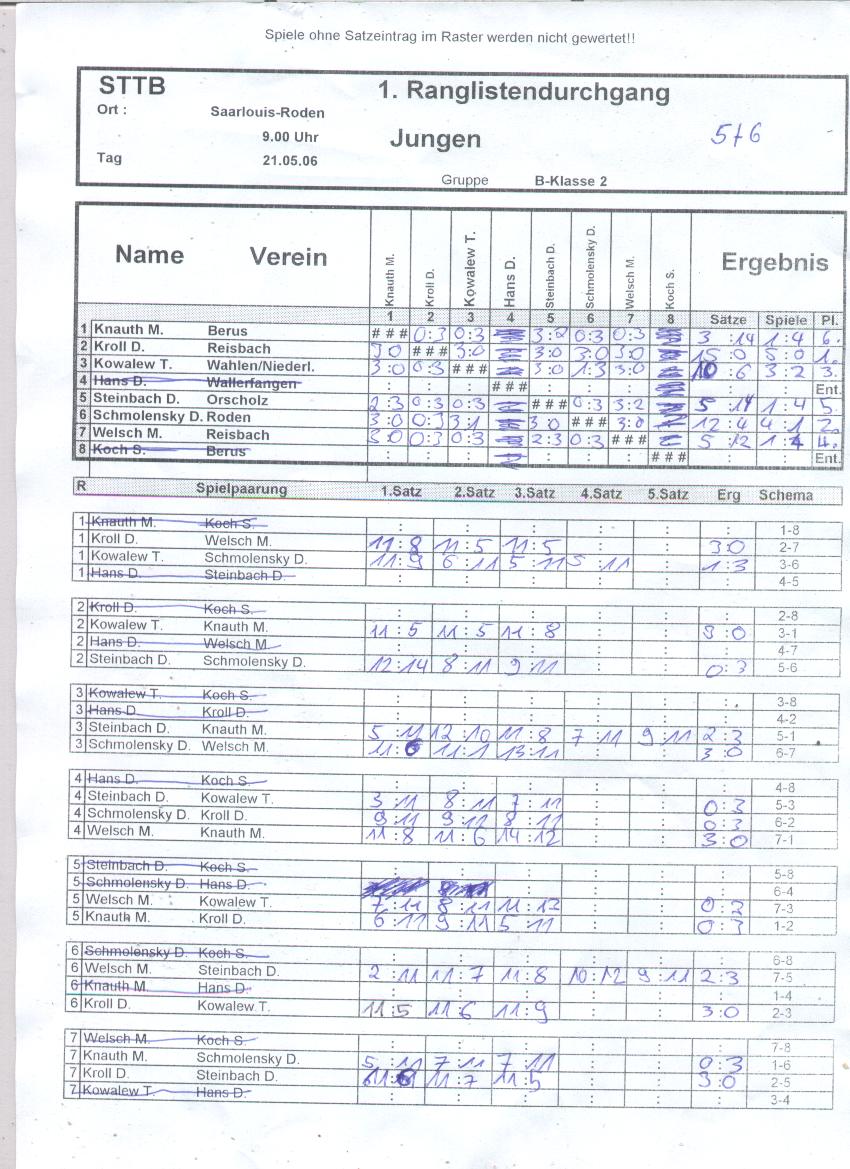 Spiele ohne Satzeintrag im Raster werden nicht gewertet!!
STTB 1. Ranglistendurchgang
Ort : Saarlouis-Roden
9.00 Uhr Jungen 5/6
Tag 21.05.06
Gruppe B-Klasse 2
Name Verein Knauth M. Kroll D. Kowalew T. Hans D. Steinbach D. Schmolensky D. Welsch M. Koch S. Ergebnis
1 2 3 4 5 6 7 8 Sätze Spiele Pl.
1 Knauth M. Berus # # # 0:3 0:3 3:2 0:3 0:3 3 :14 1:4 6.
2 Kroll D. Reisbach 3 0 # # # 3:0 3:0 3:0 3:0 15 :0 5:0 1.
3 Kowalew T. Wahlen/Niederl. 3:0 0:3 # # # 3:0 1:3 3:0 10 :6 3:2 3.
4 Hans D. Wallerfangen : : : # # # : : : : : Ent.
5 Steinbach D. Orscholz 2:3 0:3 0:3 # # # 0:3 3:2 5 :14 1:4 5.
6 Schmolensky D. Roden 3:0 0:3 3 1 3 0 # # # 3:0 12 :4 4:1 2.
7 Welsch M. Reisbach 3:0 0:3 0:3 2:3 0:3 # # # 5 :12 1:4 4.
8 Koch S. Berus : : : : : : # # # : : Ent.
R Spielpaarung 1.Satz 2.Satz 3.Satz 4.Satz 5.Satz Erg Schema
1 Knauth M. Koch S. : : : : : : 1-8
1 Kroll D. Welsch M. 11:8 11:5 11:5 : : 3:0 2-7
1 Kowalew T. Schmolensky D. 11:9 6:11 5:11 5:11 : 1:3 3-6
1 Hans D. Steinbach D. : : : : : : 4-5
2 Kroll D. Koch S. : : : : : : 2-8
2 Kowalew T. Knauth M. 11:5 11:5 11:8 : : 3:0 3-1
2 Hans D. Welsch M. : : : : : : 4-7
2 Steinbach D. Schmolensky D. 12:14 8:11 9:11 : : 0:3 5-6
3 Kowalew T. Koch S. : : : : : : 3-8
3 Hans D. Kroll D. : : : : : : 4-2
3 Steinbach D. Knauth M. 5:11 12:10 11:8 7:11 9:11 2:3 5-1
3 Schmolensky D. Welsch M. 11:6 11:1 13:11 : : 3:0 6-7
4 Hans D. Koch S. : : : : : : 4-8
4 Steinbach D. Kowalew T. 3:11 8:11 7:11 : : 0:3 5-3
4 Schmolensky D. Kroll D. 9:11 9:11 8:11 : : 0:3 6-2
4 Welsch M. Knauth M. 11:8 11:6 14:12 : : 3:0 7-1
5 Steinbach D. Koch S. : : : : : : 5-8
5 Schmolensky D. Hans D. : : : : 6-4
5 Welsch M. Kowalew T. 7:11 8:11 11:13 : : 0:3 7-3
5 Knauth M. Kroll D. 6:11 9:11 5:11 : : 0:3 1-2
6 Schmolensky D. Koch S. : : : : : : 6-8
6 Welsch M. Steinbach D. 2:11 11:7 11:8 10:12 9:11 2:3 7-5
6 Knauth M. Hans D. : : : : : : 1-4
6 Kroll D. Kowalew T. 11:5 11:6 11:9 : : 3:0 2-3
7 Welsch M. Koch S. : : : : : : 7-8
7 Knauth M. Schmolensky D. 5:11 7:11 7:11 : : 0:3 1-6
7 Kroll D. Steinbach D. 11:6 11:7 11:5 : : 3:0 2-5
7 Kowalew T. Hans D. : : : : : : 3-4